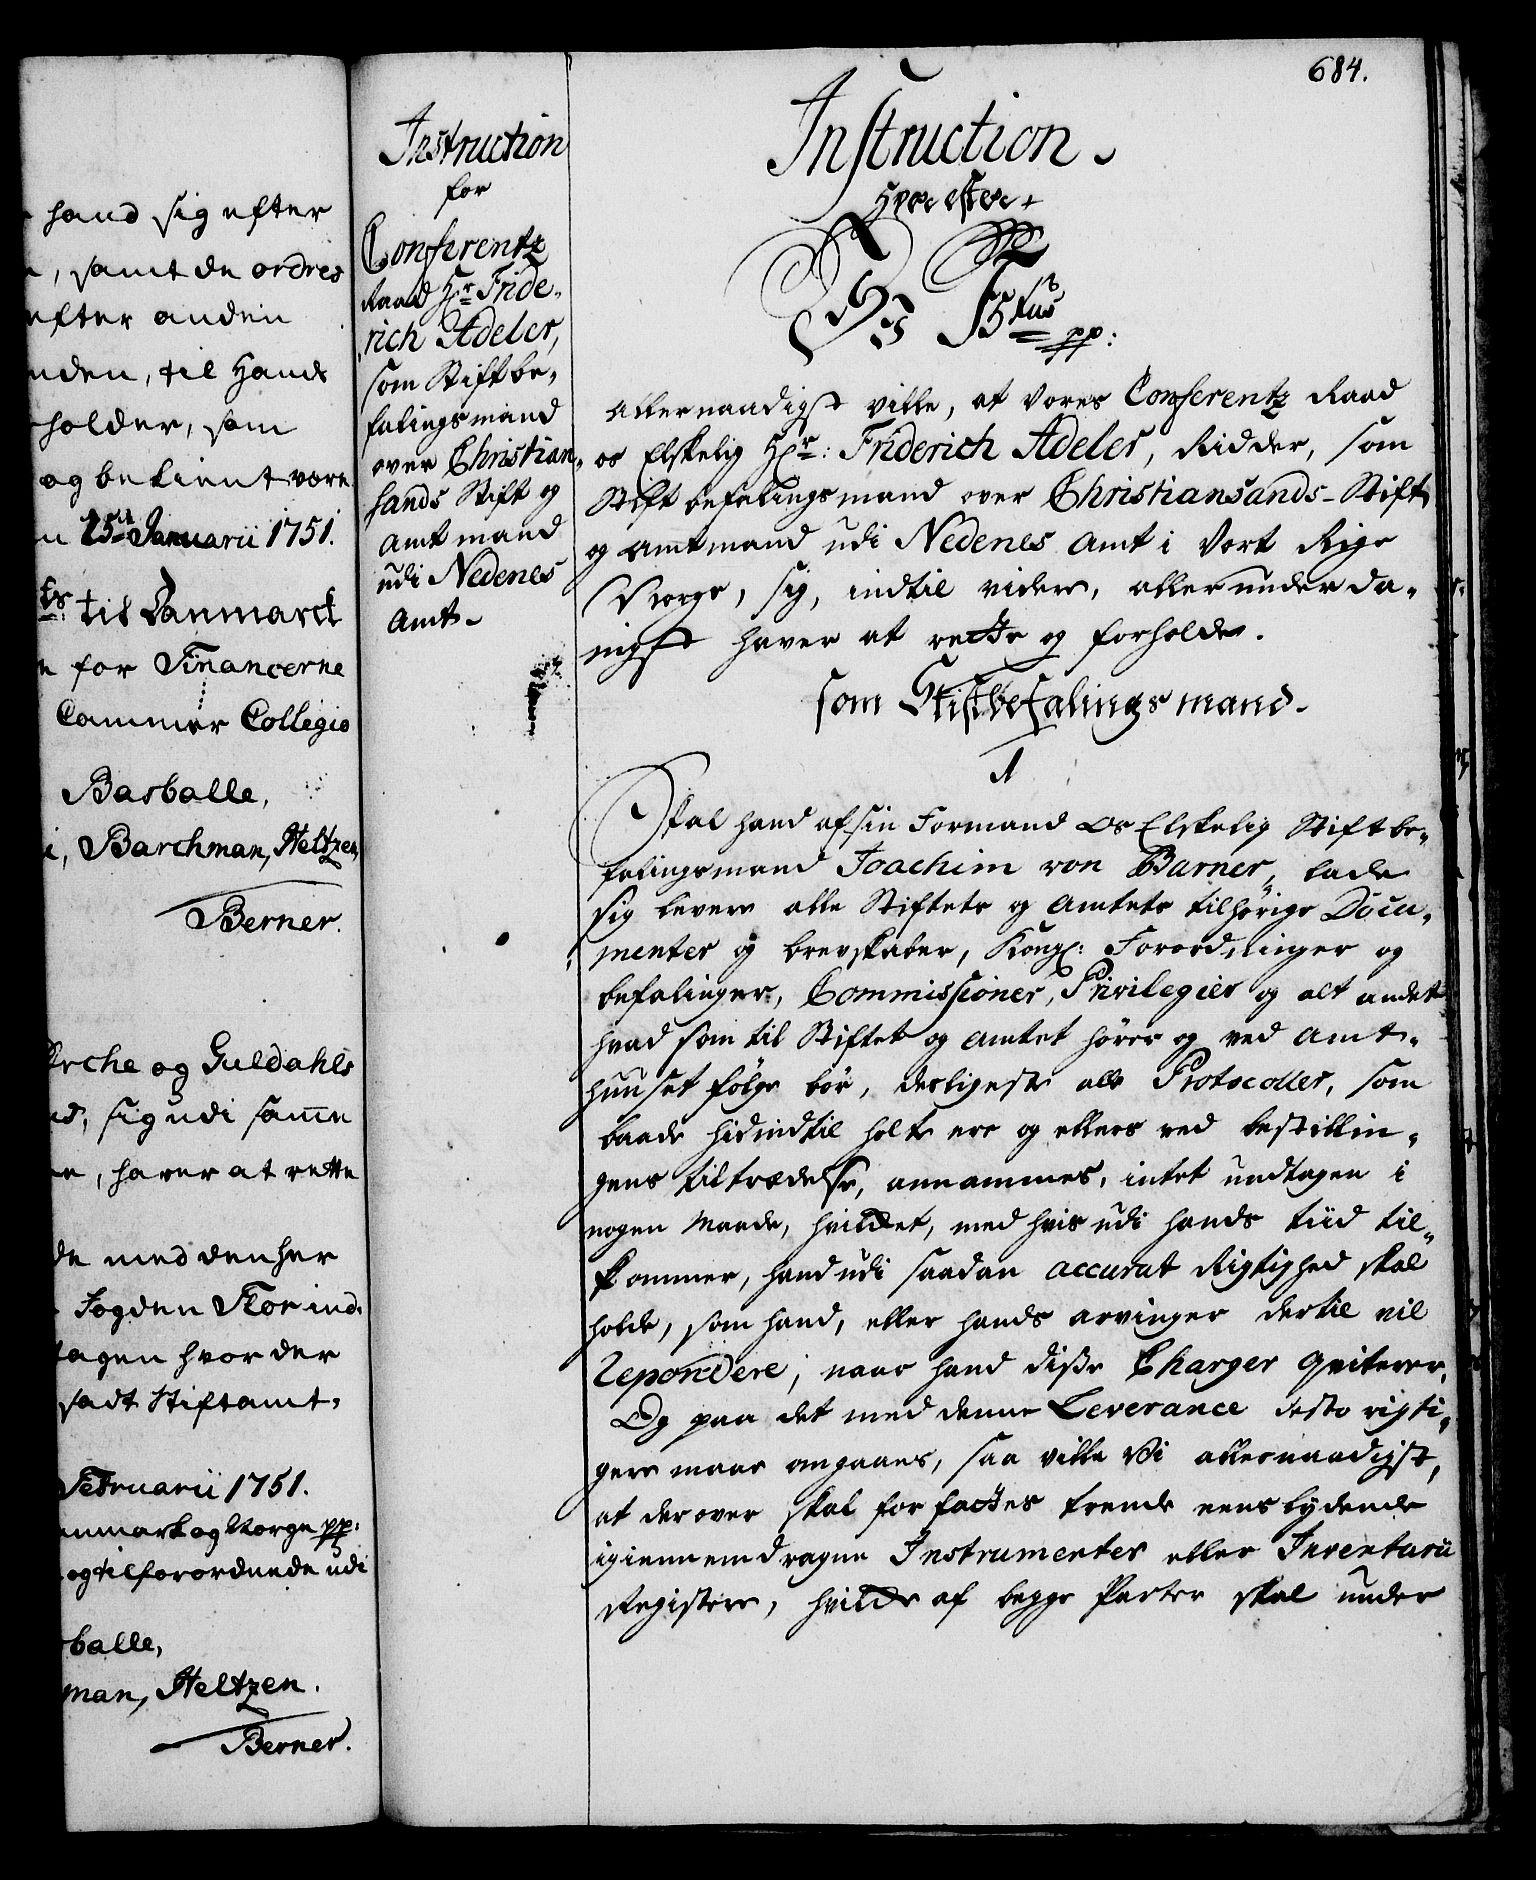 684.
hand sig efter
, samt de ordres
efter anden
nden, til Hands
holder, som
og bekient være
25d Januarii 1751.
ts: til Danmarck
for Financerne
Cammer Collegio
Basballe,
i, Barchman, Heltzen,
Berner.
Kirche og Guldahls
ud, sig udi samme
, haver at rette
de med den her
Fogden Flor ind,
tagen hvor der
sadt Stiftamt,
Februarii 1751.
enmark og Norge pp:
og tilforordnede udi
balle,
man, Heltzen.
Berner.
Instruction
for
Conferentz
Raad Hr Fride-
rich Adeler,
som Stiftbe-
falingsmand
over Christian-
sands Stift og
Amtmand
udi Nedenes
Amt.
Instruction.
Hvorefter
Vi Friderich 5tus
pp:
allernaadigst ville, at Vores Conferentz Raad
os Elskelig Hr: Friderich Adeler, Ridder, som
Stiftbefalingsmand over Christiansands-Stift
og Amtmand udi Nedenes Amt i Vort Rige
Norge, sig, indtil videre, allerunderda-
nigst haver at rette og forholde.
som Stiftbefalingsmand.
1
Skal hand af sin Formand Os Elskelig Stiftbe-
falingsmand Joachim von Barner, lade
sig levere alle Stiftets og Amtets tilhørige Docu-
menter og brevskaber, Kongl: Forordninger og
befalinger, Commissioner, Privilegier og alt andet
hvad som til Stiftet og Amtet hører og ved Amt-
huuset følge bør, desligeste alle Protocoller, som
baade hidindtil holte ere og ellers ved bestillin-
gens tiltrædelse, annammes, intet undtagen i
nogen Maade, hvilcket, med hvis udi hands tiid til-
kommer, hand udi saadan accurat Rigtighed skal
holde, som hand, eller hands arvinger dertil vil
repondere, naar hand disse Charger qviterer,
Og paa det med denne Leverance desto rigti-
gere maae omgaaes, saa ville Vi allernaadigst,
at derover skal forfattes trende eenslydende
igiennemdragne Instrumenter eller Inventarii
Registere, hvilcke af begge Parter skal under